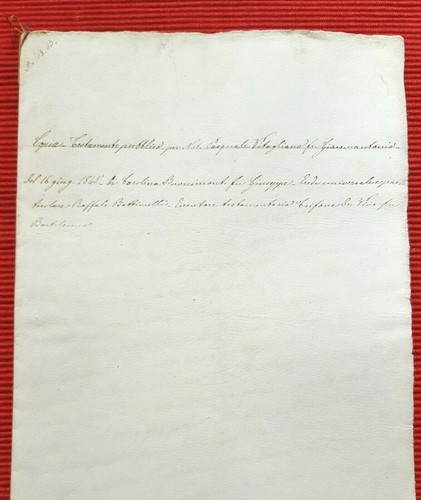 Copia Testamento pubblico per Not. Pasquale Vitagliano fu Giovannantonio
del 16 giug. 1845. di Carolina Buonincanti fu Giuseppe. Erede universale e par
ticolare Raffaele Battinelli. Esecutore testamentario Trifone De Vivo fu
Bartolomeo